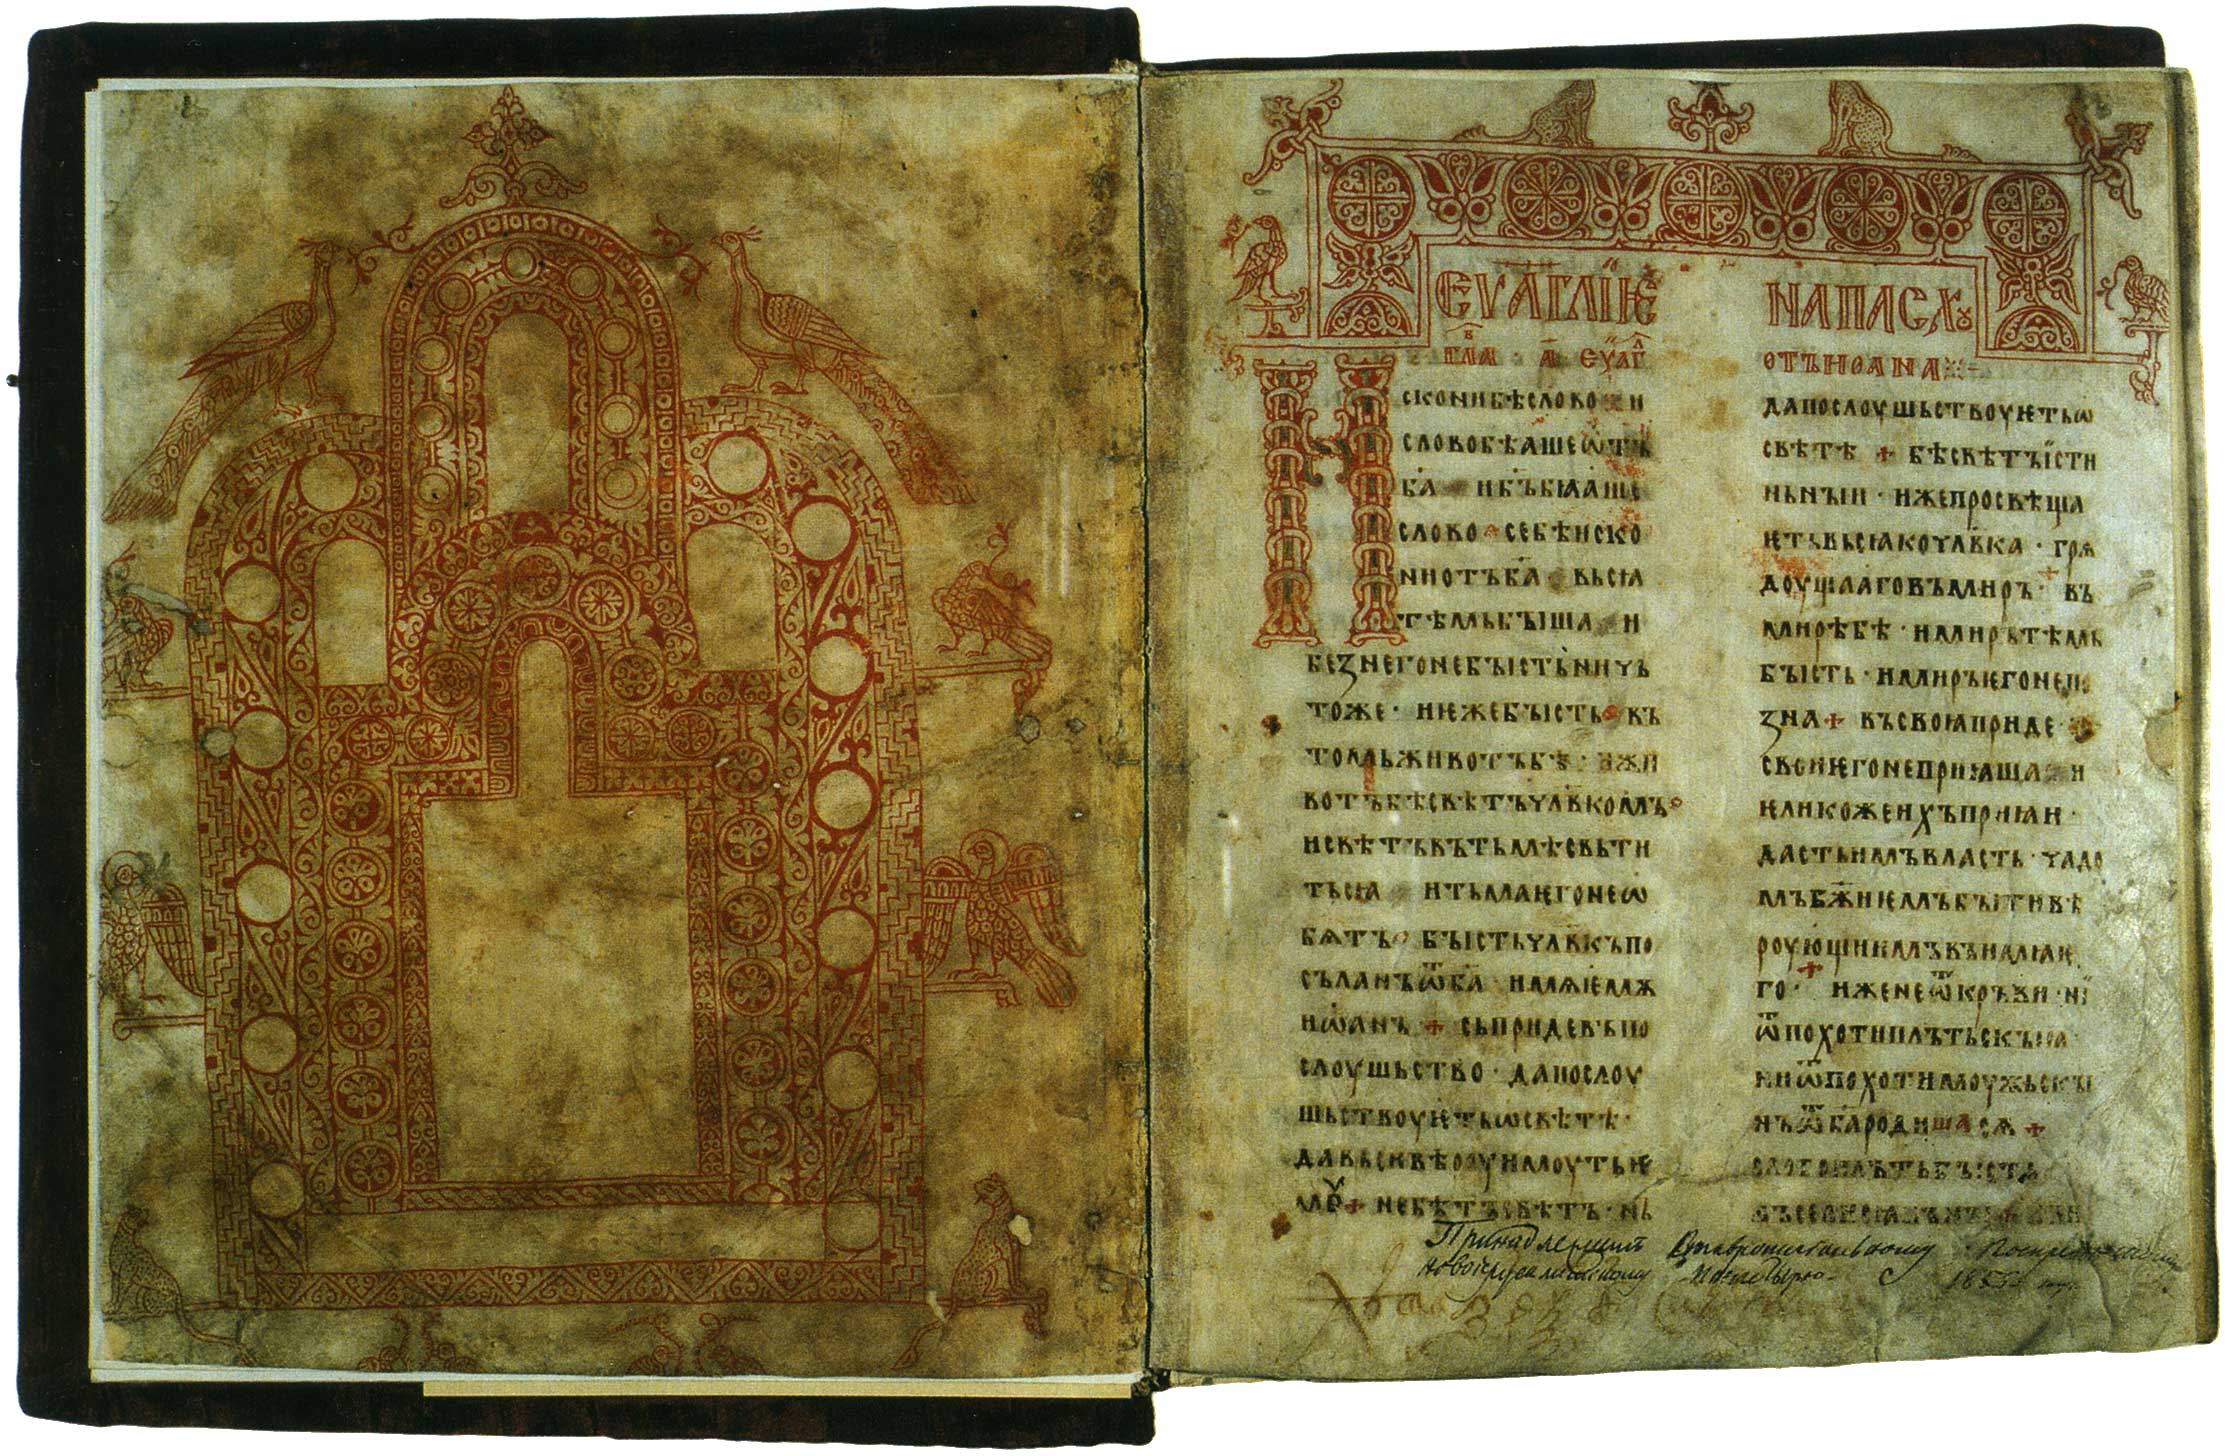 ЕѴАГЛІѤ
НАПАСХꙊ
гл҃а в҃ · а҃ · еѵаⷢ҇
отъиоана
скони бѣ слово · и
слово бѣаше ѡтъ
ба҃ · и б҃ъ бꙗаше
слово · се бѣ иско
ни отъ ба҃ · вьсꙗ
тѣмь быша · и
без него не бысть ничь
тоже · иѥже бысть · въ
томь животъ бѣ · и жи
вотъ бѣ свѣтъ чл҃вкомъ
и свѣтъ въ тьмѣ свьти
тьсꙗ · и тьма ѥго не ѡ
бѧтъ · бысть чл҃вкъ по
съланъ ѿ ба҃ · имѧ ѥмꙋ
иѡанъ + сь приде въ по
слоушьство · да послоу
шьствоуѥть ѡ свѣтѣ ·
да вьси вѣроу имоуть ѥ
моу + не бѣ тъ свѣтъ · нъ
да послоушьствоуѥть ѡ
свѣтѣ + бѣ свѣтъ їсти
ньнъіи · иже просвѣща
ѥть вьсꙗко чл҃вка · грѧ
доущааго въ миръ · въ
мирѣ бѣ · и миръ тѣмь
бысть · и миръ ѥго не по
зна + въ своꙗ приде ·
свои ѥго не приꙗша · и
ѥлико же ихъ приꙗи ·
дасть имъ власть · чадо
мъ бж҃иѥмъ быти вѣ
роующиимъ въ имꙗ ѥ
го · иже не ѿ кръви · ні
ѿ похоти плътьскыꙗ
ни ѿ похоти моужьскы
нъ ѿ ба҃ родишасѧ +
слово плъть бысть
Принадлежит Ставропигиальному Воскресенскому
Новоиерусалимскому Монастырю 185